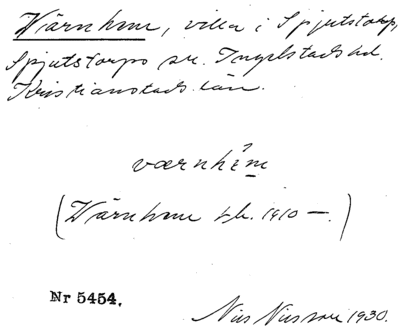 Wärnhem, villa i Spjutstorp,
Spjutstorps sn. Ingelstads hd.
Kristianstads län.
værnhè̱m
(Wärnhem 1910 —.)
Nr 5454.
Nils Nilsson 1930.